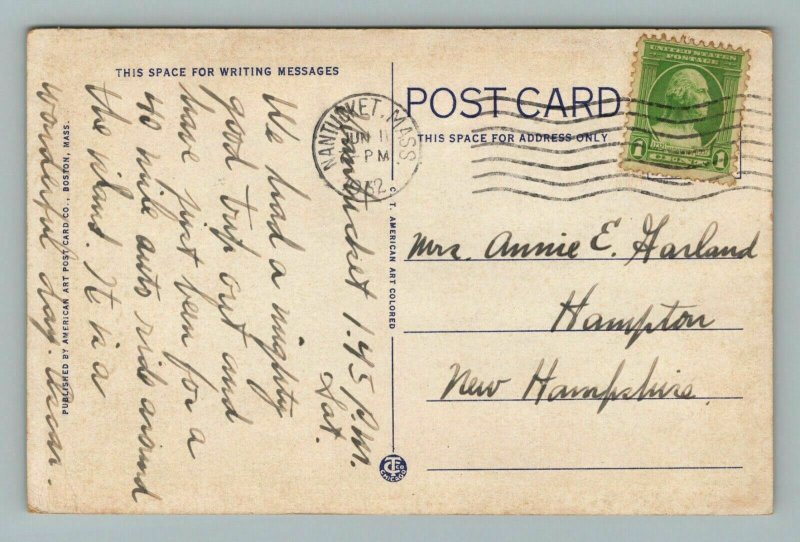 THIS SPACE FOR WRITING MESSAGES
Nantucket 1.45 P.M.
Sat.
We had a mighty
good trip out and
have just been for a
40 mile auto ride around
the island. It is a
wonderful day. Oscar.
PUBLISHED BY AMERICAN ART POST CARD CO., BOSTON, MASS.
NANTUCKET, MASS.
JUN 11
PM
C. T. AMERICAN ART COLORED
POST CARD
THIS SPACE FOR ADDRESS ONLY
UNITED STATES
POSTAGE
1 1
Mrs. Annie E. Garland
Hampton
New Hampshire.
CHICAGO